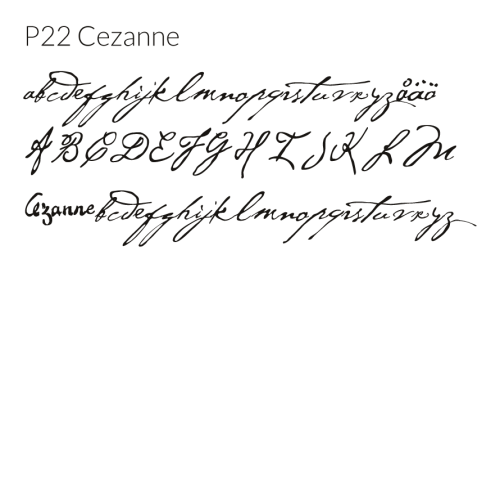 P22 Cezanne
abcdefghijklmnopqrstuvxyzåäö
ABCDEFGHIJKLM
Cezannebcdefghijklmnopqrstuvxyz